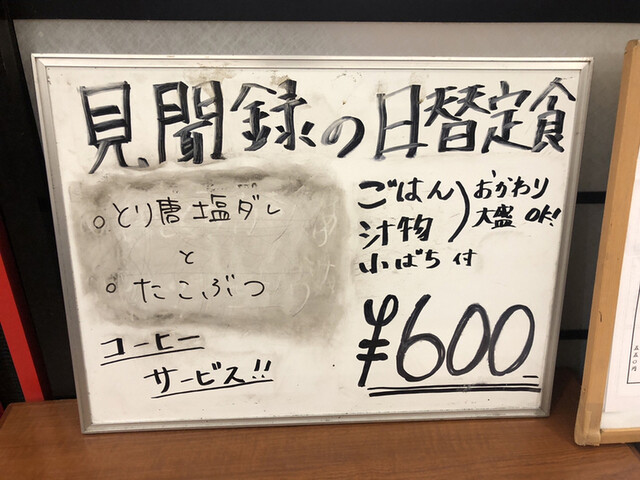 見聞録の日替定食
○とり唐塩ダレ
と
○たこぶつ
コーヒー
サービス!!
ごはん
汁物
小ばち付
おかわり
大盛OK!
¥600
五五〇円